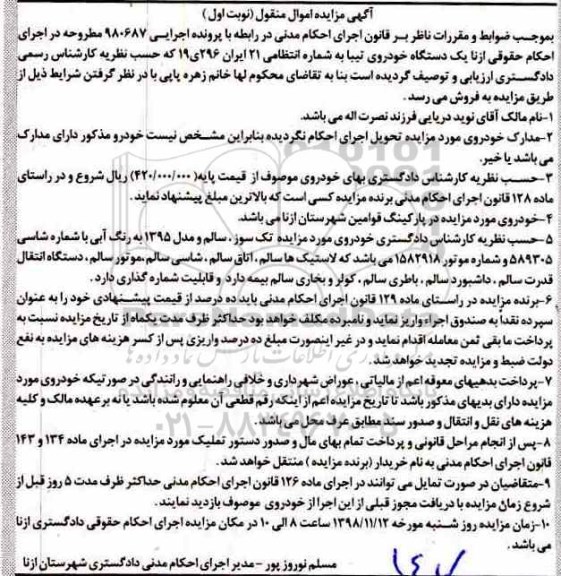 آگهی مزایده اموال منقول (نوبت اول)
بموجب ضوابط و مقررات ناظر بر قانون اجرای احکام مدنی در رابطه با پرونده اجرایی ۹۸۰۶۸۷ مطروحه در اجرای
احکام حقوقی ازنا یک دستگاه خودروی تیبا به شماره انتظامی ۲۱ ایران ۲۹۶ی۱۹ که حسب نظریه کارشناس رسمی
دادگستری ارزیابی و توصیف گردیده است بنا به تقاضای محکوم لها خانم زهره پاپی با در نظر گرفتن شرایط ذیل از
طریق مزایده به فروش می رسد .
۱-نام مالک آقای نوید دریایی فرزند نصرت اله می باشد.
۲-مدارک خودروی مورد مزایده تحویل اجرای احکام نگردیده بنابراین مشخص نیست خودرو مذکور دارای مدارک
می باشد یا خیر.
۳-حسب نظریه کارشناس دادگستری بهای خودروی موصوف از قیمت پایه( ۴۲۰/۰۰۰/۰۰۰) ریال شروع و در راستای
ماده ۱۲۸ قانون اجرای احکام مدنی برنده مزایده کسی است که بالاترین مبلغ پیشنهاد نماید.
۴-خودروی مورد مزایده در پارکینگ قوامین شهرستان ازنا می باشد.
۵-حسب نظریه کارشناس دادگستری خودروی مورد مزایده تک سوز ، سالم و مدل ۱۳۹۵ به رنگ آبی با شماره شاسی
۵۸۹۳۰۵ و شماره موتور ۱۵۸۲۹۱۸ می باشد که لاستیک ها سالم ، اتاق سالم ، شاسی سالم ،موتور سالم ، دستگاه انتقال
قدرت سالم ، داشبورد سالم ، باطری سالم ، کولر و بخاری سالم بیمه دارد و قابلیت شماره گذاری دارد .
۶-برنده مزایده در راستای ماده ۱۲۹ قانون اجرای احکام مدنی باید ده درصد از قیمت پیشنهادی خود را به عنوان
سپرده نقداً به صندوق اجرا واریز نماید و نامبرده مکلف خواهد بود حداکثر ظرف مدت یکماه از تاریخ مزایده نسبت به
پرداخت ما بقی ثمن معامله اقدام نماید و در غیر اینصورت مبلغ ده درصد واریزی پس از کسر هزینه های مزایده به نفع
دولت ضبط و مزایده تجدید خواهد شد.
۷-پرداخت بدهیهای معوقه اعم از مالیاتی ، عوارض شهرداری و خلافی راهنمایی و رانندگی در صورتیکه خودروی مورد
مزایده دارای بدیهای مذکور باشد تا تاریخ مزایده اعم از اینکه رقم قطعی آن معلوم شده باشد یا نه بر عهده مالک و کلیه
هزینه های نقل و انتقال و صدور سند مطابق عرف محل می باشد.
۸-پس از انجام مراحل قانونی و پرداخت تمام بهای مال و صدور دستور تملیک مورد مزایده در اجرای ماده ۱۳۴ و ۱۴۳
قانون اجرای احکام مدنی به نام خریدار (برنده مزایده ) منتقل خواهد شد.
۹-متقاضیان در صورت تمایل می توانند در اجرای ماده ۱۲۶ قانون اجرای احکام مدنی حداکثر ظرف مدت ۵ روز قبل از
شروع زمان مزایده با دریافت مجوز قبلی از این اجرا از خودروی موصوف بازدید نمایند.
۱۰-زمان مزایده روز شنبه مورخه ۱۳۹۸/۱۱/۱۲ ساعت ۸ الی ۱۰ در مکان مزایده اجرای احکام حقوقی دادگستری ازنا
می باشد .
مسلم نوروز پور -مدیر اجرای احکام مدنی دادگستری شهرستان ازنا